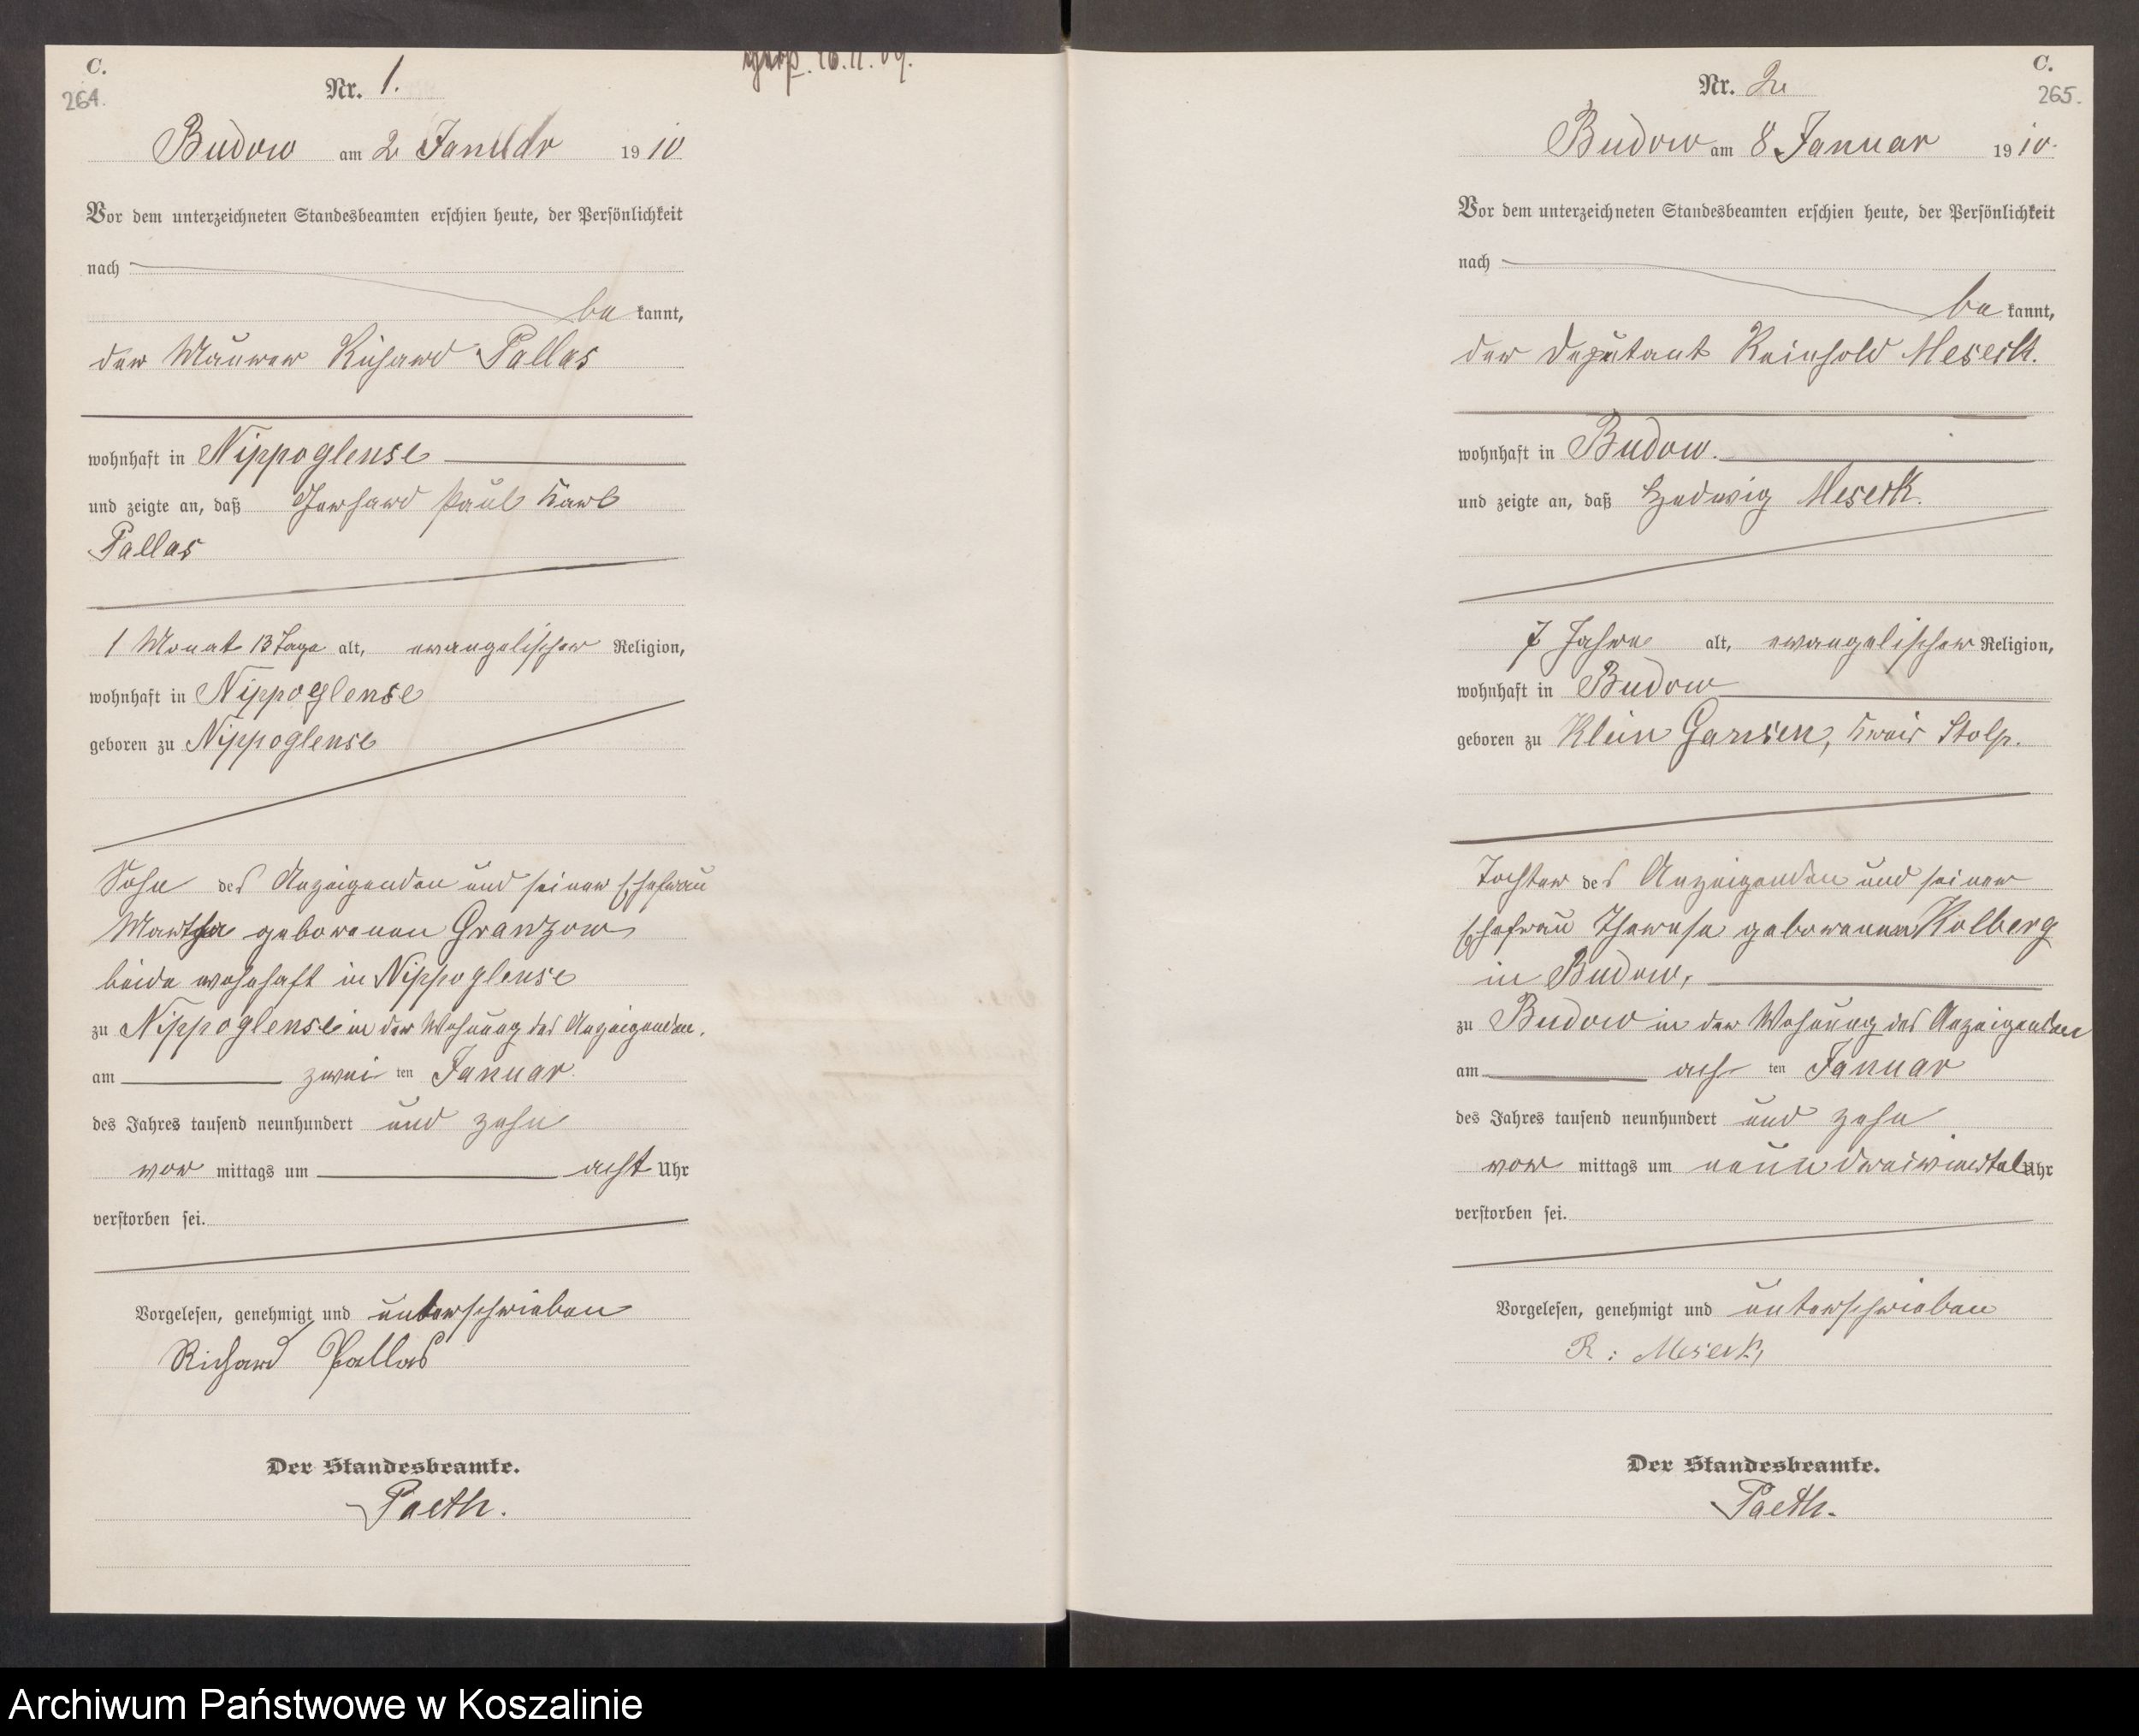 C.
264.
Nr. 1.
Budow am 2 Januar 1910
Vor dem unterzeichneten Standesbeamten erschien heute, der Persönlichkeit
nach
be kannt,
der Maurer Richard Pallas
wohnhaft in Nippoglense
und zeigte an, daß Gerhard Paul Karl
Pallas
1 Monat 13 Tage alt, evangelischer Religion,
wohnhaft in Nippoglense
geboren zu Nippoglense
Sohn des Anzeigenden und seiner Ehefrau
Martha geborenen Granzow
beide wohnhaft in Nippoglense
zu Nippoglense in der Wohnung des Anzeigenden.
am zwei ten Januar
des Jahres tausend neunhundert und zehn
vor mittags um acht Uhr
verstorben sei.
Vorgelesen, genehmigt und unterschrieben
Richard Pallas
Der Standesbeamte.
Paeth.
16.11.09.
C.
265.
Nr. 2
Budow am 8 Januar 1910.
Vor dem unterzeichneten Standesbeamten erschien heute, der Persönlichkeit
nach
be kannt,
der Deputant Reinhold Meseck.
wohnhaft in Budow.
und zeigte an, daß Hedwig Meseck.
7 Jahre alt, evangelischer Religion,
wohnhaft in Budow
geboren zu Klein Gansen, Kreis Stolp.
Tochter des Anzeigenden und seiner
Ehefrau Therese geborenen Kolberg
in Budow,
zu Budow in der Wohnung des Anzeigenden
am ach ten Januar
des Jahres tausend neunhundert und zehn
vor mittags um neun dreiviertel Uhr
verstorben sei.
Vorgelesen, genehmigt und unterschrieben
R: Meseck,
Der Standesbeamte.
Paeth.
Archiwum Państwowe w Koszalinie